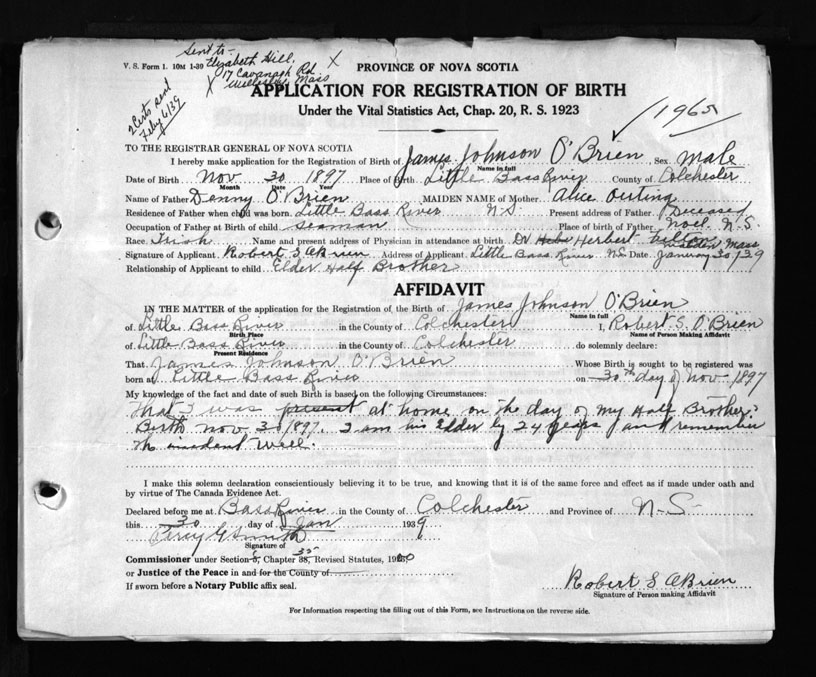 Sent to-
V. S. Form 1. 10M 1-39 Elizabeth Hill, X
17 Cavanagh Rd
X Mass
2 Certs sent
Feby 6/39
PROVINCE OF NOVA SCOTIA
APPLICATION FOR REGISTRATION OF BIRTH
Under the Vital Statistics Act, Chap. 20, R. S. 1923
TO THE REGISTRAR GENERAL OF NOVA SCOTIA
I hereby make application for the Registration of Birth of James Johnson O'Brien, Sex Male
Name in full
Date of Birth Nov 30 1897 Place of Birth Little Bass River County of Colchester
Month Date Year
Name of Father Denny O'Brien MAIDEN NAME of Mother Alice
Residence of Father when child was born. Little Bass River N-S- Present address of Father Deceased
Occupation of Father at Birth of child seaman Place of birth of Father Noel N.S.
Race Irish Name and present address of Physician in attendance at birth Dr Herbert Mass
Signature of Applicant Robert S O'Brien Address of Applicant Little Bass River NS Date January 30/39
Relationship of Applicant to child Elder Half Brother
AFFIDAVIT
IN THE MATTER of the application for the Registration of the Birth of James Johnson O'Brien
Name in full
of Little Bass River in the County of Colchester I, Robert S. O'Brien
Birth Place Name of Person Making Affidavit
of Little Bass River in the County of Colchester do solemnly declare:
Present Residence
That James Johnson O'Brien Whose Birth is sought to be registered was
born at Little Bass River on 30th day of Nov 1897
My knowledge of the fact and date of such Birth is based on the following Circumstances:
That I was present at home on the day of my Half Brother's
Birth Nov 30/1897. I am his Elder by 24 years and remember
the incident well.
I make this solemn declaration conscientiously believing it to be true, and knowing that it is of the same force and effect as if made under oath and
by virtue of The Canada Evidence Act.
Declared before me at Bass River in the County of Colchester and Province of N-S-
this 30 day of Jan 1939
Percy G Smith
Signature of
Commissioner under Section 6, Chapter 38, 35 Revised Statutes, 1900
or Justice of the Peace in and for the County of
If sworn before a Notary Public affix seal.
Robert S O'Brien
Signature of Person making Affidavit
For Information respecting the filling out of this Form, see Instructions on the reverse side.